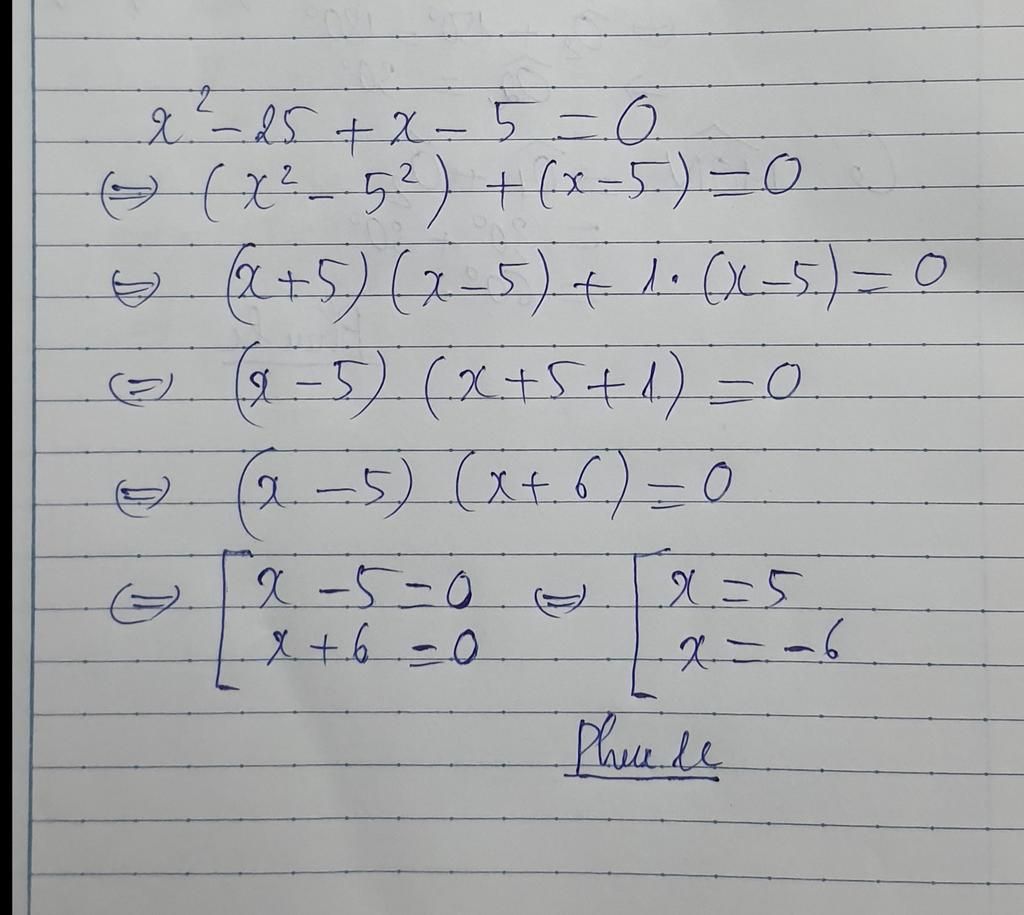 x² - 25 + x - 5 = 0
⇔ (x² - 5²) + (x - 5) = 0
⇔ (x + 5) (x - 5) + 1 · (x - 5) = 0
⇔ (x - 5) (x + 5 + 1) = 0
⇔ (x - 5) (x + 6) = 0
⇔ [ x - 5 = 0 ⇔ [ x = 5
x + 6 = 0 x = -6